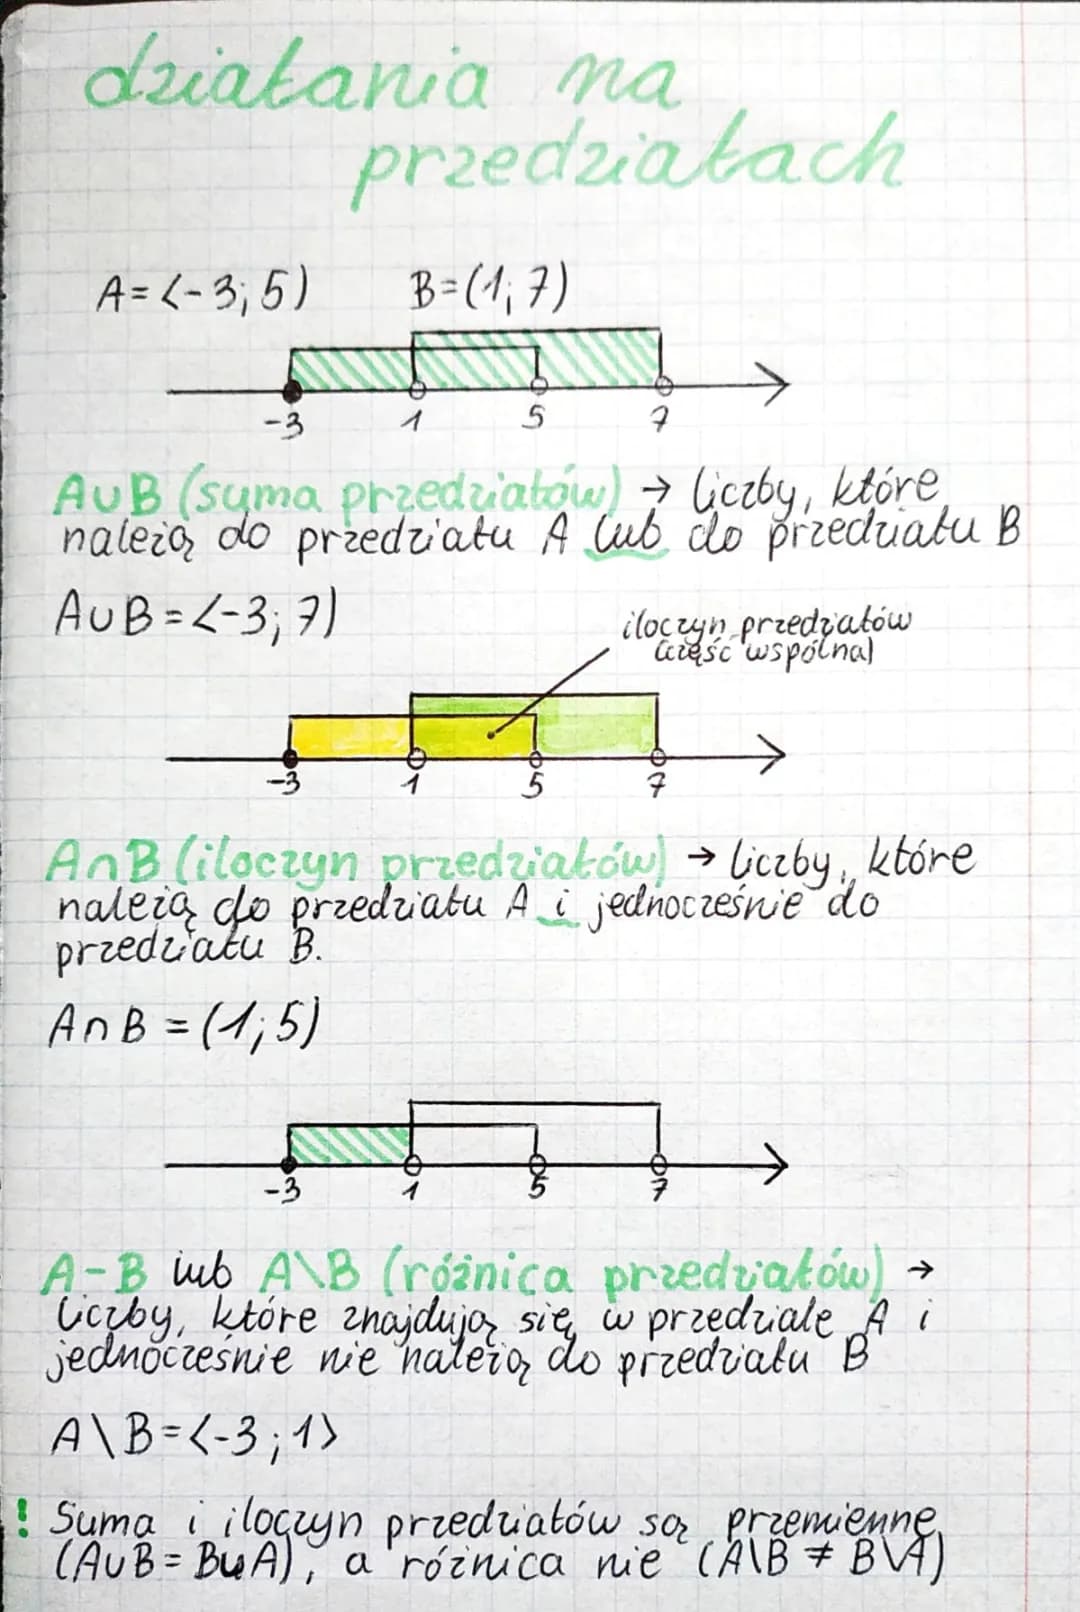 działania na
przedziałach
A=<-3;5) B=(1;7)
-3 1 5 7
A∪B (suma przedziałów) → liczby, które
należą do przedziału A lub do przedziału B
A∪B=<-3;7)
iloczyn przedziałów
(część wspólna)
-3 1 5 7
A∩B (iloczyn przedziałów) → liczby, które
należą do przedziału A i jednocześnie do
przedziału B.
A∩B = (1;5)
-3 1 5 7
A-B lub A\B (różnica przedziałów) →
liczby, które znajdują się w przedziale A i
jednocześnie nie należą do przedziału B
A\B=<-3;1>
! Suma i iloczyn przedziałów są przemienne
(A∪B = B∪A), a różnica nie (A\B ≠ B\A)